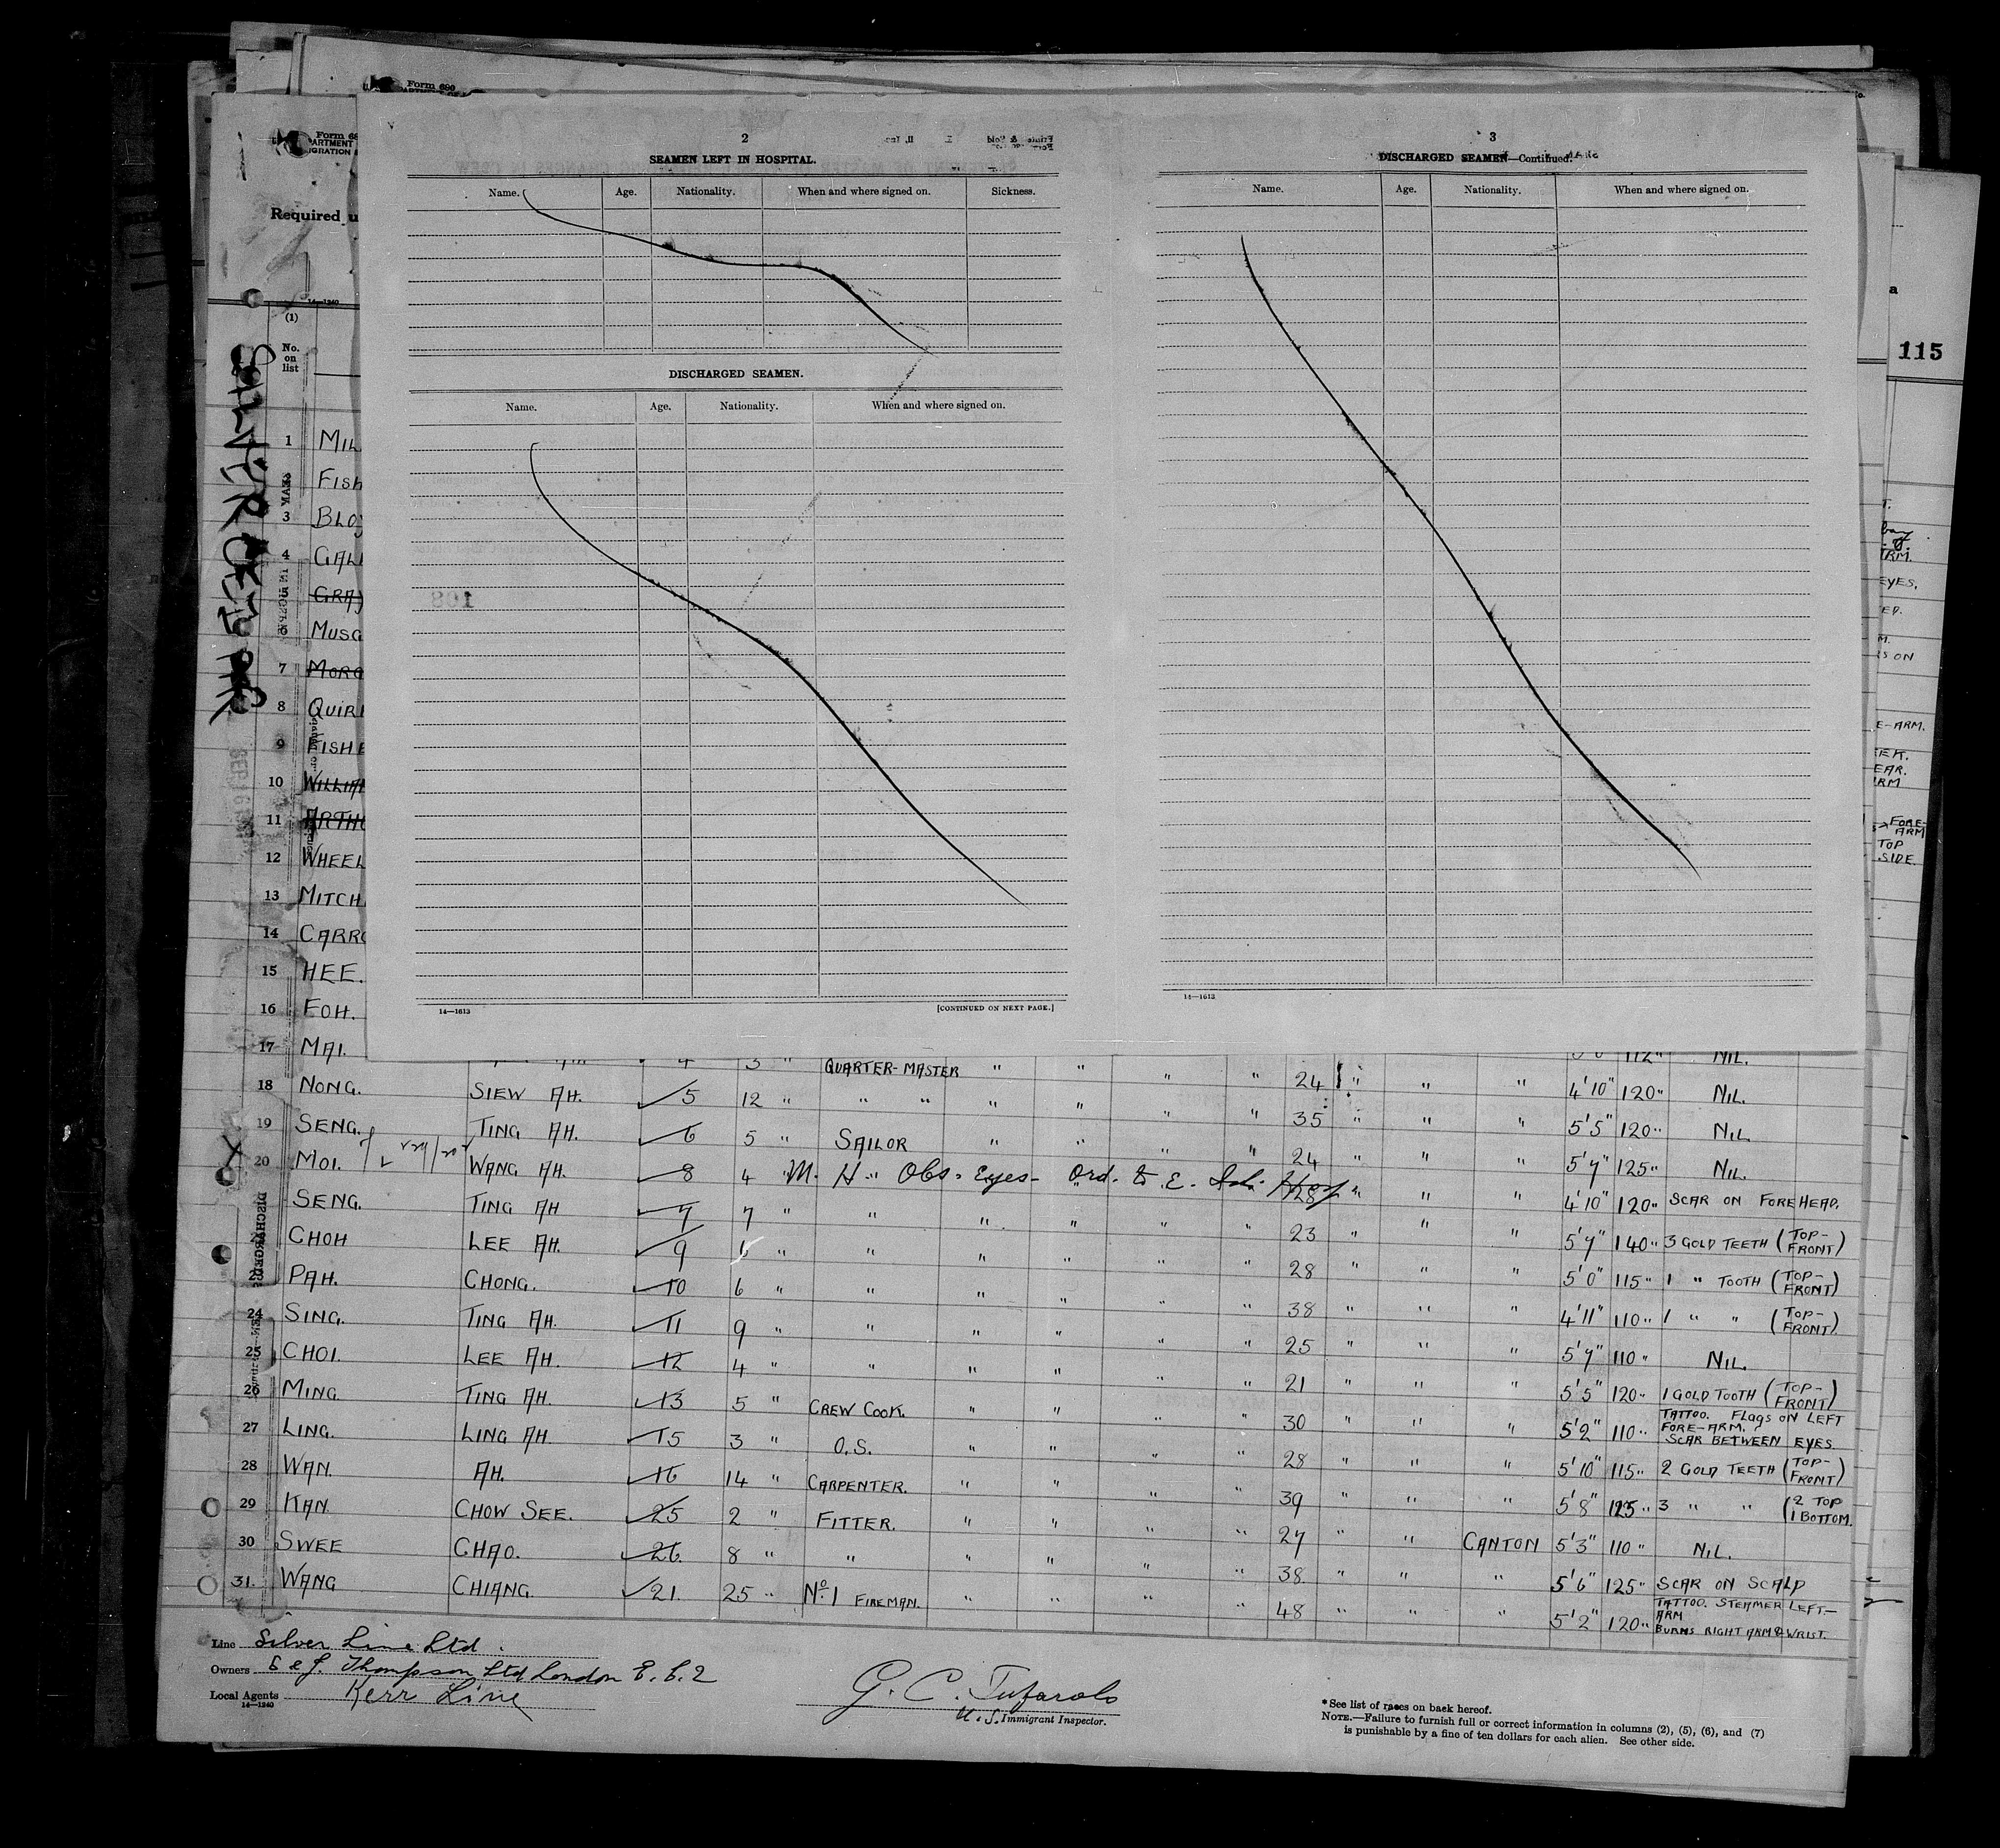 Form 680
Form 68
PARTMENT
IGRATION
Required u
14—1240
(1)
No.
on
list
SILVERCEDAR
115
2
SEAMEN LEFT IN HOSPITAL.
Name. Age. Nationality. When and where signed on. Sickness.
DISCHARGED SEAMEN.
Name. Age. Nationality. When and where signed on.
108
14—1613 [CONTINUED ON NEXT PAGE.]
3
DISCHARGED SEAMEN—Continued.
Name. Age. Nationality. When and where signed on.
14—1613
1 MIL
FISH
3 BLO
4 GALL
5 GRAY
6 MUSG
7 MORG
8 QUIR
9 FISHE
10 WILLIAM
11 ARTHU
12 WHEEL
13 MITCH
14 CARRO
15 HEE.
16 FOH.
17 MAI. 4 3 " QUARTER-MASTER " " " " 24 " " " 112" NIL.
18 NONG. SIEW AH. 5 12 " " " " " " " 35 " " " 4'10" 120" NIL.
19 SENG. TING AH. 6 5 " SAILOR " " " " 24 " " " 5'5" 120" NIL.
20 MOI. WANG AH. 8 4 " M. H. Obs. Eyes- Ord. to E. Isl. Hosp 28 " " " 5'7" 125" NIL.
SENG. TING AH 7 7 " " " " " " 23 " " " 4'10" 120" SCAR ON FOREHEAD.
CHOH LEE AH. 9 6 " " " " " " 28 " " " 5'7" 140" 3 GOLD TEETH (TOP-FRONT)
PAH. CHONG. 10 6 " " " " " " 38 " " " 5'0" 115" 1 " TOOTH (TOP-FRONT)
24 SING. TING AH. 11 9 " " " " " " 25 " " " 4'11" 110" 1 " " (TOP-FRONT)
25 CHOI. LEE AH. 12 4 " " " " " " 21 " " " 5'7" 110" NIL.
26 MING. TING AH. 13 5 " CREW COOK. " " " " 30 " " " 5'5" 120" 1 GOLD TOOTH (TOP-FRONT)
27 LING. LING AH. 15 3 " O.S. " " " " 28 " " " 5'2" 110" TATTOO. FLAGS ON LEFT FORE-ARM. SCAR BETWEEN EYES.
28 WAN. AH. 16 14 " CARPENTER. " " " " 39 " " " 5'10" 115" 2 GOLD TEETH (TOP-FRONT)
29 KAN. CHOW SEE. 25 2 " FITTER. " " " " 27 " " CANTON 5'8" 125" 3 " " (2 TOP 1 BOTTOM.
30 SWEE CHAO. 26 8 " " " " " " 38 " " " 5'3" 110" NIL.
31. WANG CHIANG. 21. 25 " No. 1 FIREMAN. " " " " 48 " " " 5'6" 125" SCAR ON SCALP
5'2" 120" TATTOO. STEAMER LEFT-ARM BURNS RIGHT ARM & WRIST.
Line Silver Line Ltd.
Owners S & J. Thompson Ltd London E.C.2
Local Agents Kerr Line
14—1240
G. C. Tufarolo
U.S. Immigrant Inspector.
* See list of races on back hereof.
NOTE.—Failure to furnish full or correct information in columns (2), (5), (6), and (7)
is punishable by a fine of ten dollars for each alien. See other side.